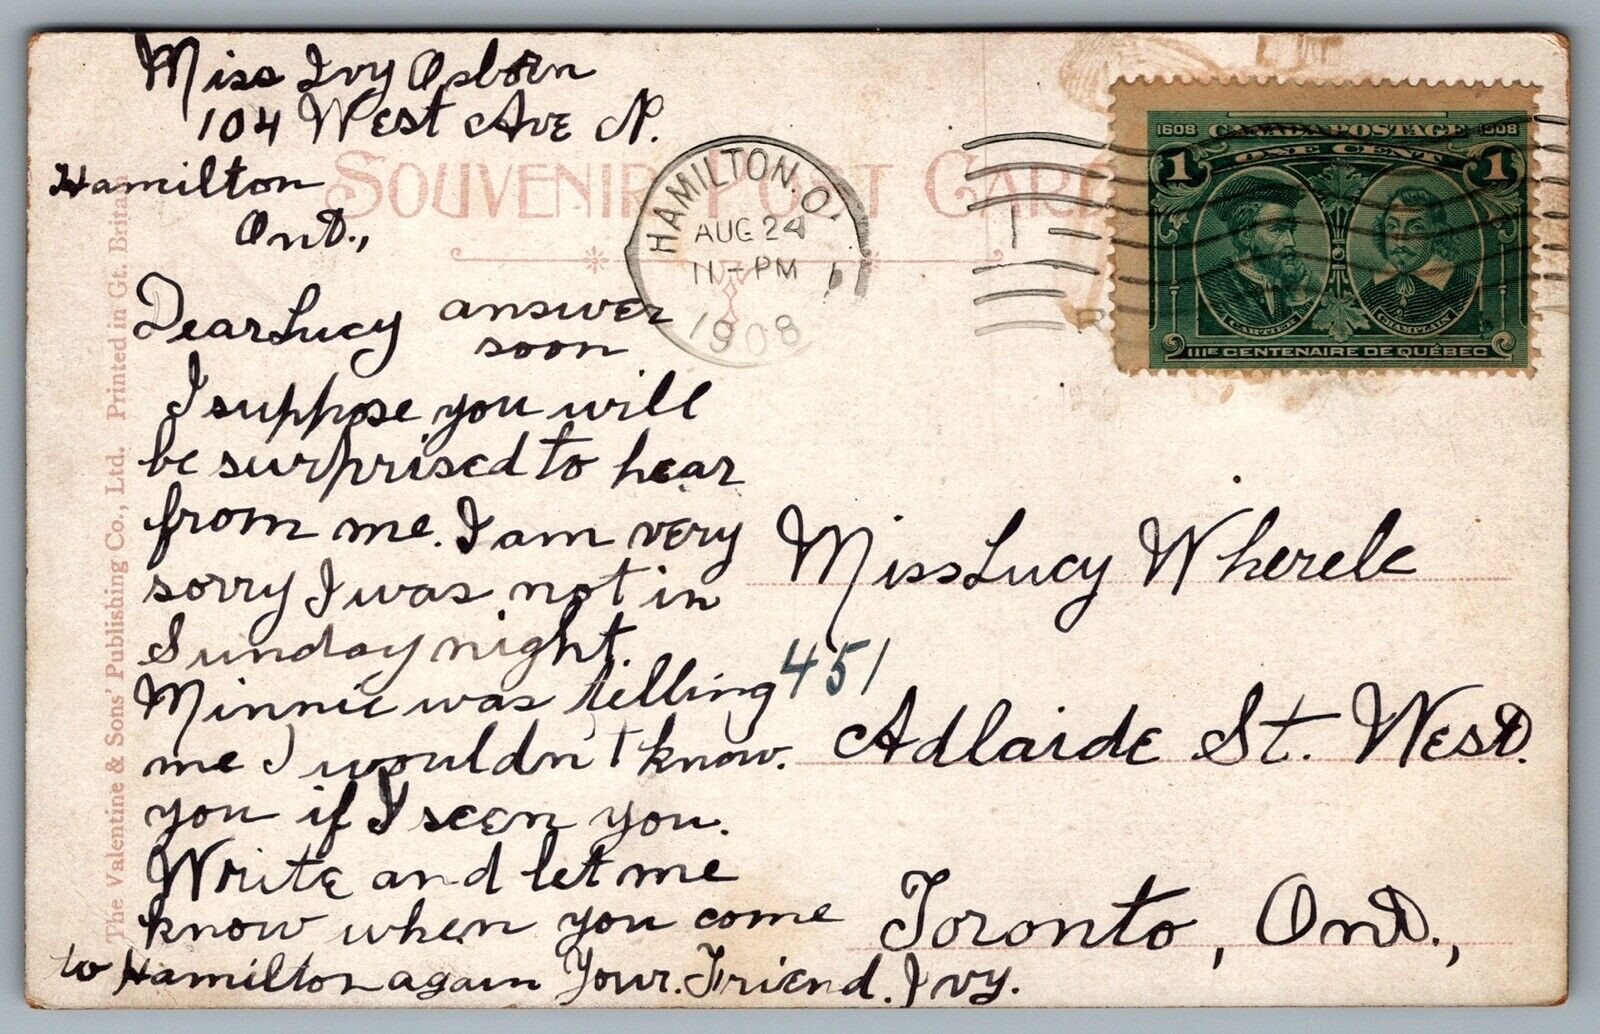 Miss Ivy Osborn
104 West Ave N.
Hamilton
Ont.,
SOUVENIR POST CARD
HAMILTON. O
AUG 24
11-PM
1908
1608 CANADA POSTAGE 1908
1 ONE CENT 1
CARTIER CHAMPLAIN
IIIE CENTENAIRE DE QUÉBEC
Dear Lucy answer
soon
I suppose you will
be surprised to hear
from me. I am very
sorry I was not in
Sunday night.
Minnie was telling
me I wouldn't know.
you if I seen you.
Write and let me
know when you come
to Hamilton again Your. Friend. Ivy.
Miss Lucy Wherele
451
Adlaide St. West.
Toronto, Ont.,
The Valentine & Sons' Publishing Co., Ltd. Printed in Gt. Britain